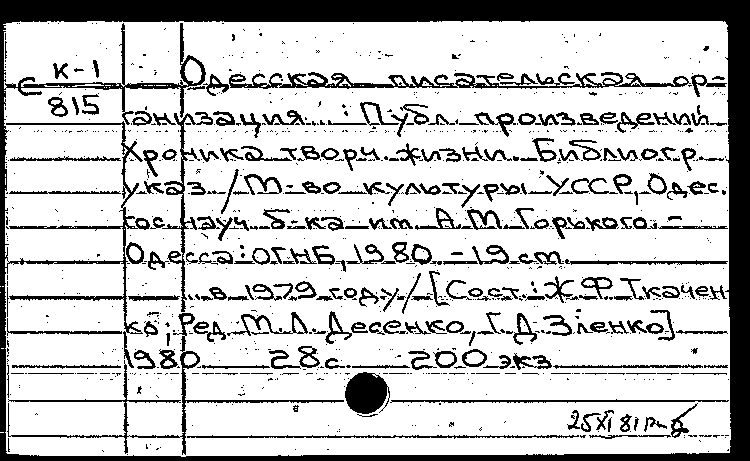 С К-1
815
Одесская писательская ор-
ганизация...: Публ. произведений.
Хроника творч. жизни. Библиогр.
указ. / М-во культуры УССР, Одес.
гос. науч. б-ка им. А.М. Горького. -
Одесса: ОГНБ, 1980 - 19 см.
...в 1979 году / [Сост.: Ж.Ф. Ткачен-
ко; Ред. М.Л. Десенко, Г.Д. Зленко]
1980 28с 200 экз.
25 XI 81